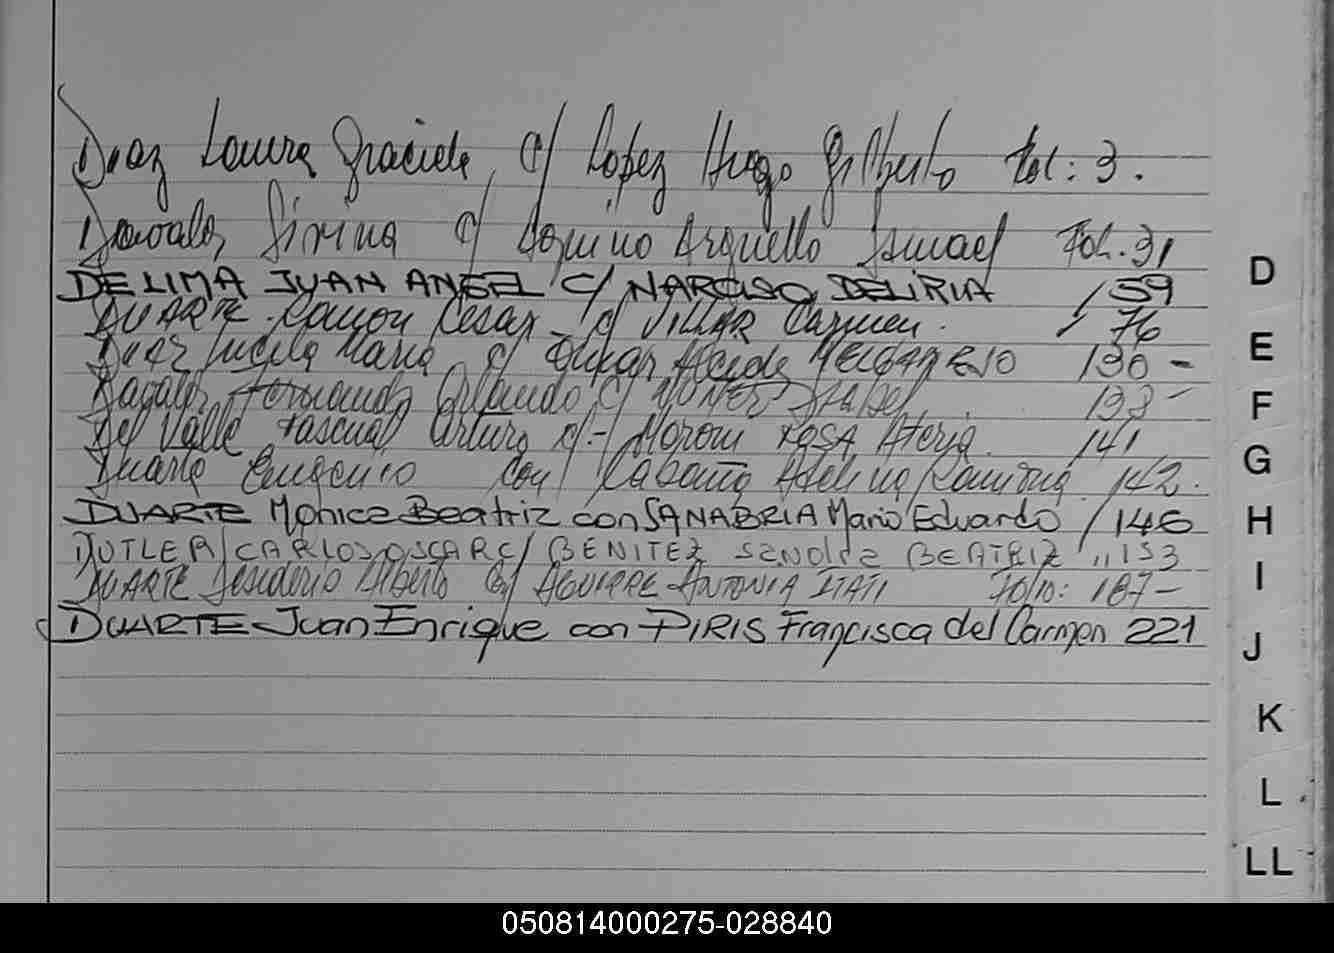 Diaz Laura Graciela, c/ Lopez Hugo Gilberto fol: 3.
Davalos Sirina c/ Aquino Arguello Ismael Fol. 31
DE LIMA JUAN ANGEL c/ NARCISO DELIRIA / 59
DUARTE Ramon Cesar c/ VILLAR Carmen. / 76
Diaz Lucila Maria c/ Alcide MELGAREJO 130 -
Fernando Orlando c/ 133 -
Del Valle Pascual Arturo c/- Moroni ROSA 141
Duarte Eugenio con Cabaña Adelina Ramona 142.
DUARTE Monica Beatriz con SANABRIA Mario Eduardo / 146
DUTLER CARLOS OSCAR C/ BENITEZ BEATRIZ ,, 153
DUARTE Desiderio Alberto c/ AGUIRRE ANTONIA ITATI Folio: 187 -
DUARTE Juan Enrique con PIRIS Francisca del Carmen 221
D
E
F
G
H
I
J
K
L
LL
050814000275-028840